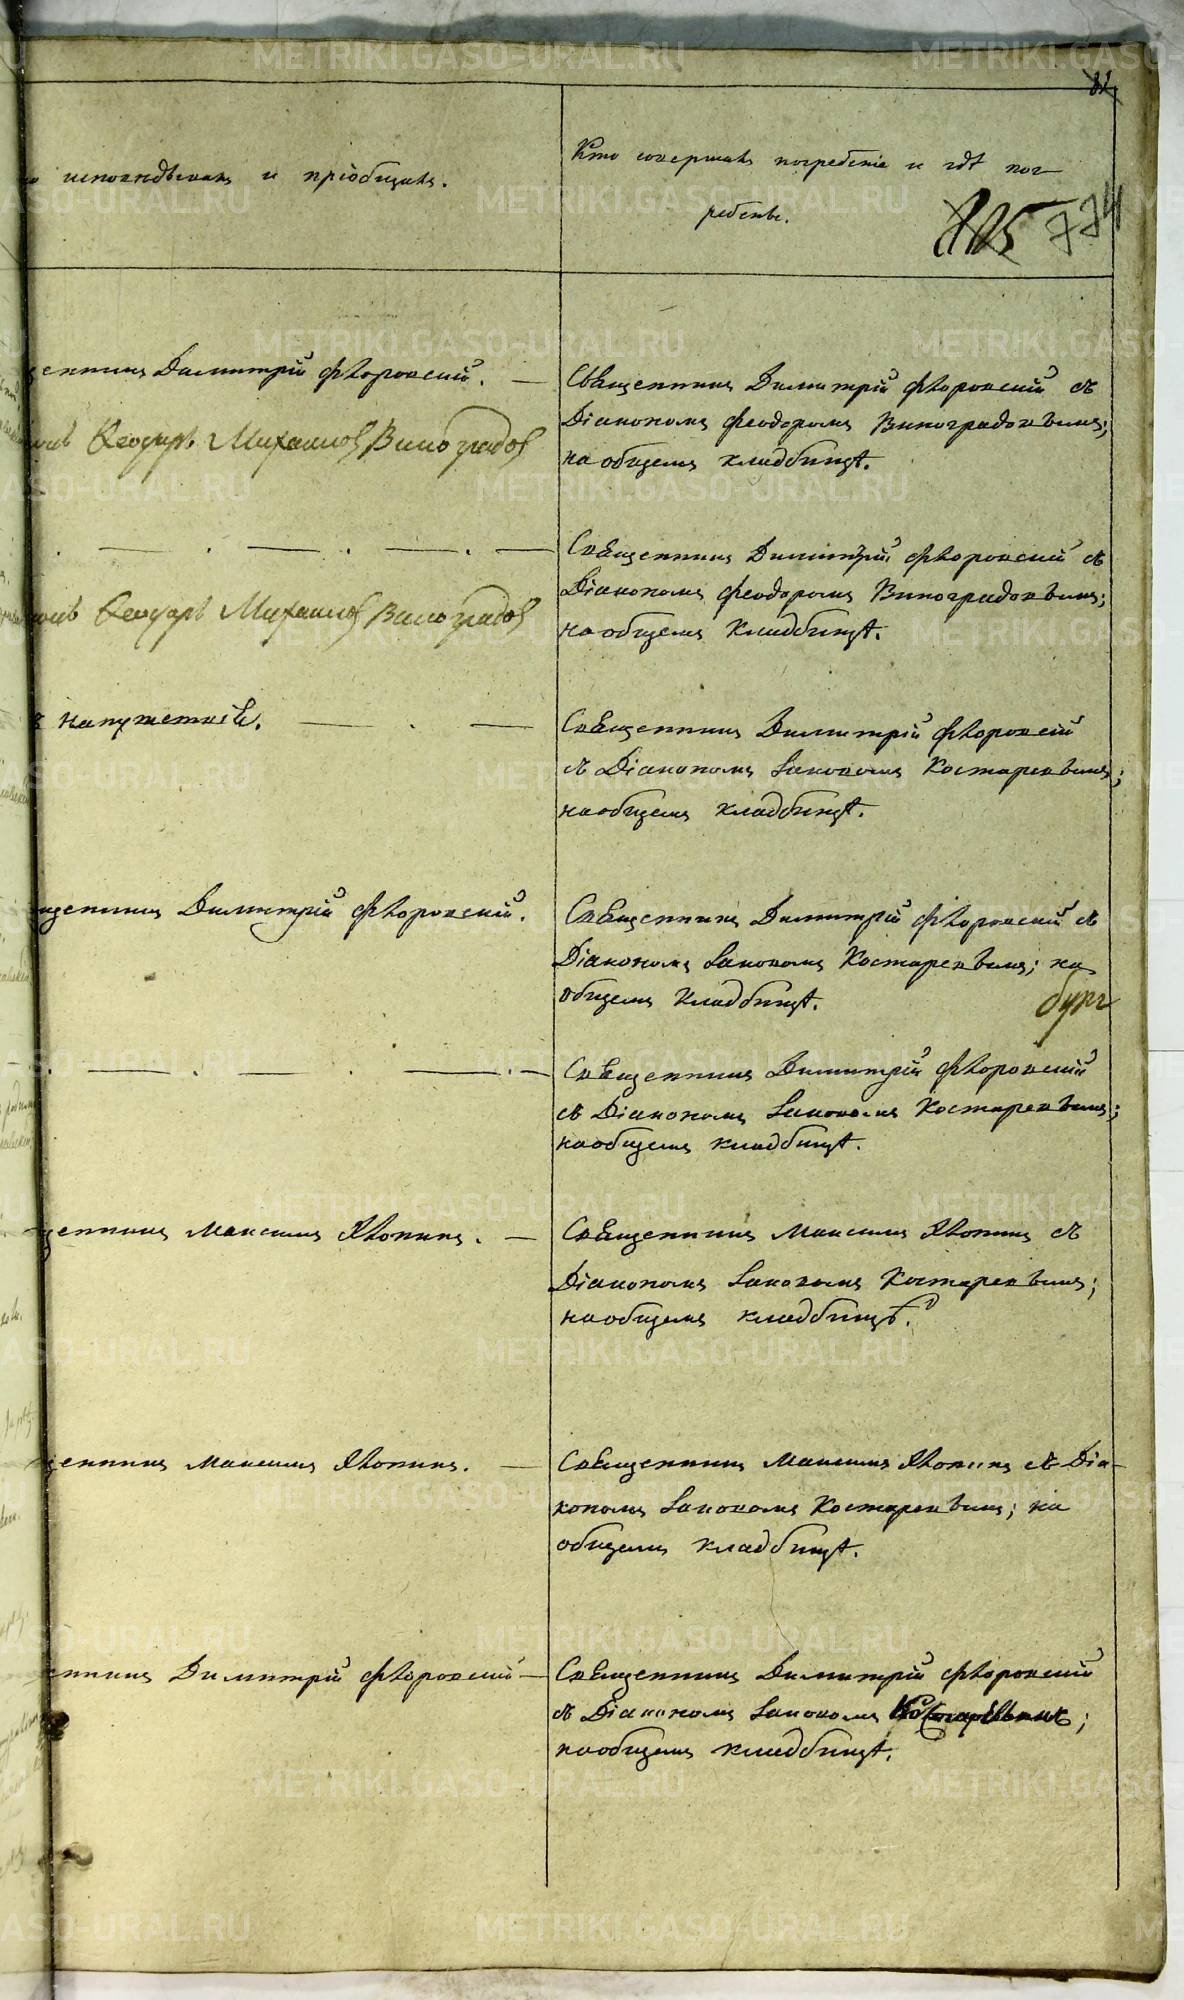 исповѣдывалъ и пріобщалъ.
Кто совершалъ погребеніе и гдѣ пог
ребенъ.
774
Димитрій Флоровскій.
Священникъ Димитрій Флоровскій съ
Діакономъ Феодоромъ Виноградовымъ;
на общемъ кладбищѣ.
Ѳеодоръ Михаиловъ Виноградов
Священникъ Димитрій Флоровскій съ
Діакономъ Феодоромъ Виноградовымъ;
на общемъ кладбищѣ.
Ѳеодоръ Михаиловъ Виноградов
Священникъ Димитрій Флоровскій
съ Діакономъ Іаковомъ Костаревымъ;
на общемъ кладбищѣ.
Димитрій Флоровскій.
Священникъ Димитрій Флоровскій съ
Діакономъ Іаковомъ Костаревымъ; на
общемъ кладбищѣ.
бург
Священникъ Димитрій Флоровскій
съ Діакономъ Іаковомъ Костаревымъ;
на общемъ кладбищѣ.
Максимъ
Священникъ Максимъ съ
Діакономъ Іаковомъ Костаревымъ;
на общемъ кладбищѣ.
Максимъ
Священникъ Максимъ съ Діа-
кономъ Іаковомъ Костаревымъ; на
общемъ кладбищѣ.
Димитрій Флоровскій
Священникъ Димитрій Флоровскій
съ Діакономъ Іаковомъ Костаревымъ;
на общемъ кладбищѣ.
METRIKI.GASO-URAL.RU